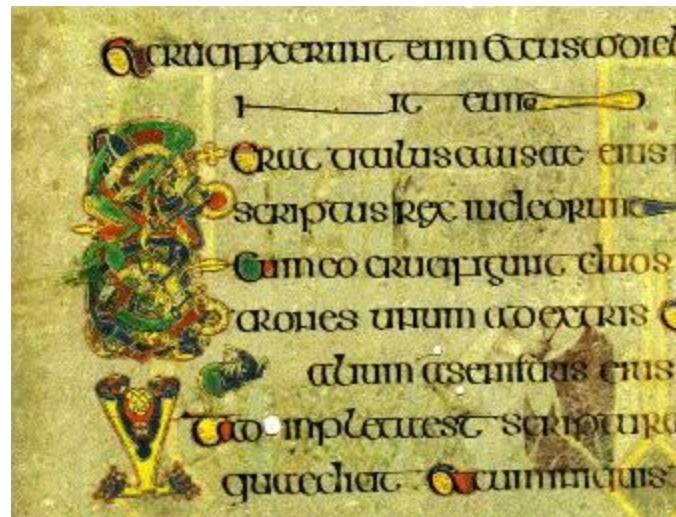 Et crucifixerunt eum et custodie
eum
Erat titulus causae eius
scriptus rex iudeorum
Cum eo crucifigunt duos
trones unum adextris
alium asenistris eius
inpletaest scriptura
quaedicit et cum iniquis